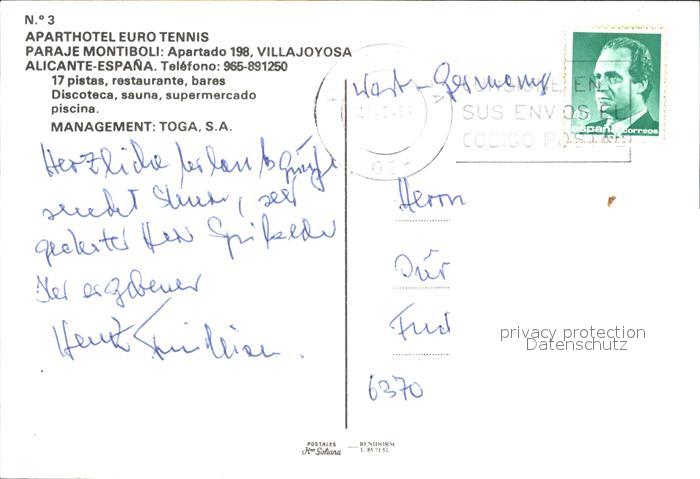 N.º 3
APARTHOTEL EURO TENNIS
PARAJE MONTIBOLI: Apartado 198, VILLAJOYOSA
ALICANTE-ESPAÑA. Teléfono: 965-891250
17 pistas, restaurante, bares
Discoteca, sauna, supermercado
piscina.
MANAGEMENT: TOGA, S.A.
West-Germany
EN
SUS ENVIOS EL
CODIGO POSTAL
España correos
Herzliche Urlaubsgrüße
sendet Ihnen, sehr
geehrter Herr
Ihr ergebener
Herrn
6370
privacy protection
Datenschutz
POSTALES
Hnos Galiana
BENIDORM
T. 85 71 52